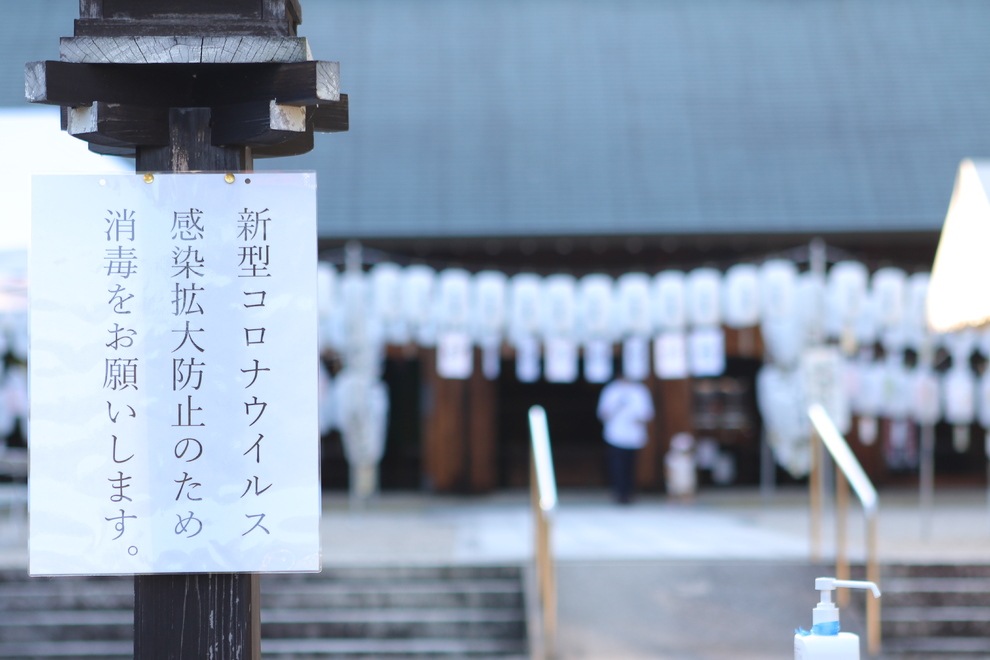 新型コロナウイルス
感染拡大防止のため
消毒をお願いします。